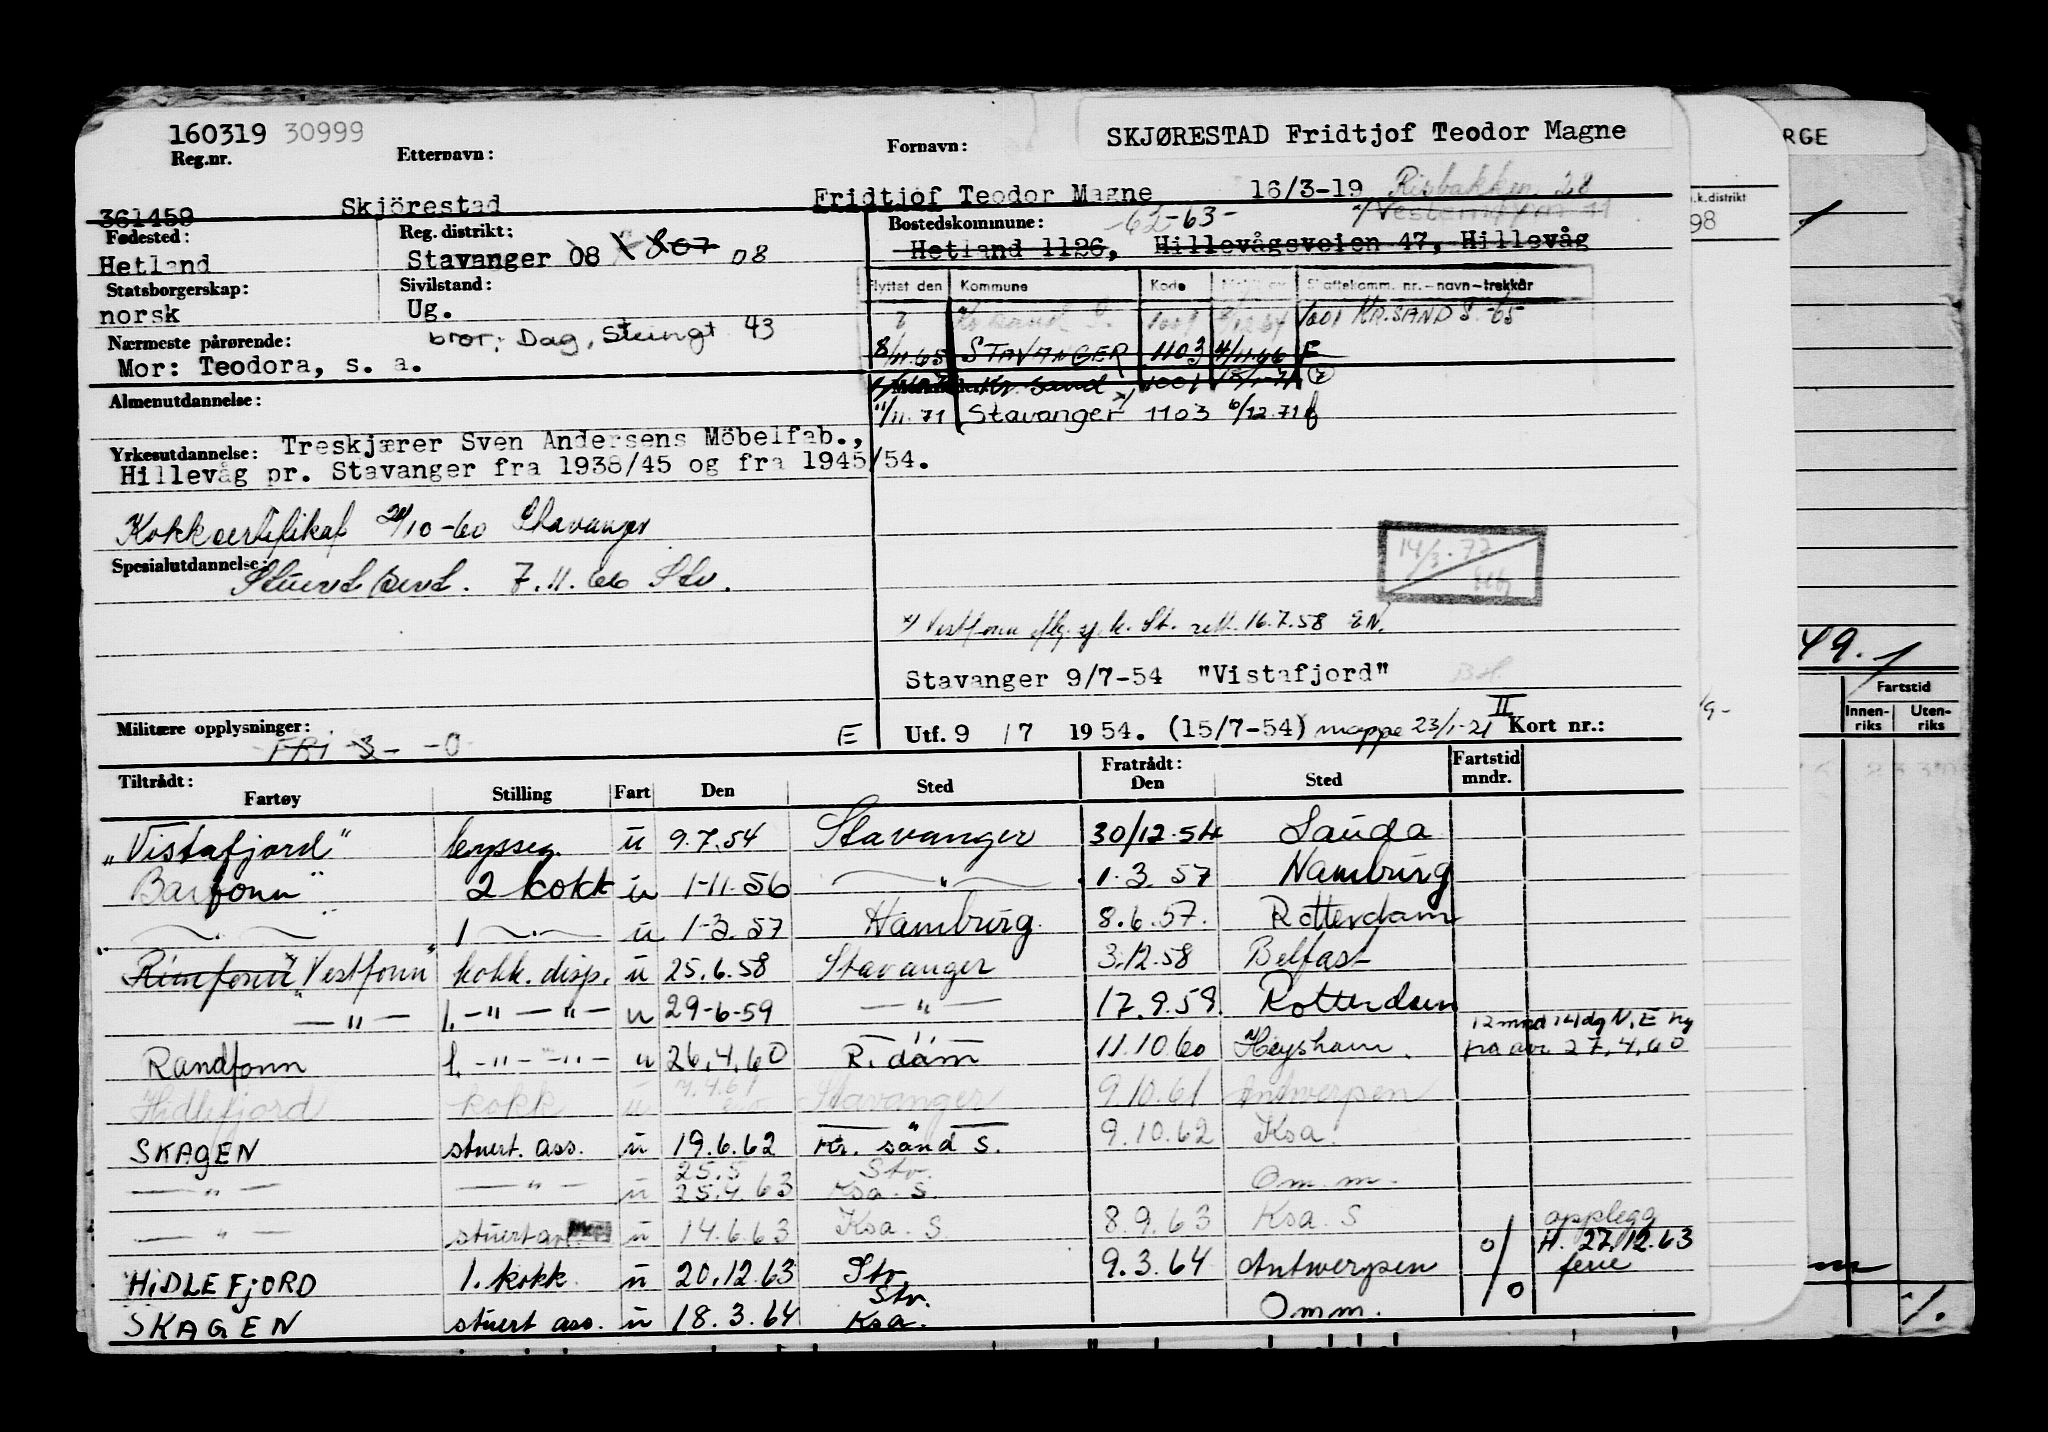 160319 30999
SKJØRESTAD Fridtjof Teodor Magne
RGE
Reg.nr. Etternavn: Fornavn:
361459 Skjörestad Fridtjof Teodor Magne 16/3-19 Risbakken 28
.k.distrikt
98
Fødested: Reg. distrikt: Bostedskommune: -62-63-
Hetland Stavanger 08 08 Hetland 1126, Hillevågsveien 47, Hillevåg
Statsborgerskap: Sivilstand: Flyttet den Kommune Kode Skattekomm. nr.-navn-trekkår
norsk Ug. 1001 1001 KR.SAND S -65
Nærmeste pårørende: bror: Dag, Steingt 43
8/11.65 STAVANGER 1103 4/11.66 F
Mor: Teodora, s. a.
Kr. sand 1001
Almenutdannelse: 11/11.71 Stavanger 1103 6/12.71 f
Yrkesutdannelse: Treskjærer Sven Andersens Möbelfab.,
Hillevåg pr. Stavanger fra 1938/45 og fra 1945/54.
Kokkcertifikat 20/10-60 Stavanger
14/3.72
Spesialutdannelse: Stuert sert. 7.11.66 Stv.
x) Vestfonn iflg. sj.k. St. rett. 16.7.58 EN.
49.
Stavanger 9/7-54 "Vistafjord" BH.
Fartstid
Innenriks Utenriks
Militære opplysninger: FRI 3- -0 E Utf. 9 /7 1954. (15/7-54) mappe 23/1-21 II Kort nr.:
Tiltrådt: Fratrådt: Fartstid mndr.
Fartøy Stilling Fart Den Sted Den Sted
"Vistafjord" bysseg. u 9.7.54 Stavanger 30/12.54 Sauda
Barfonn" 2 kokk u 1-11.56 — " — 1.3.57 Hamburg
— " — 1 — " — u 1-3.57 Hamburg 8.6.57. Rotterdam
"Rimfonn" "Vestfonn" kokk. disp. u 25.6.58 Stavanger 3.12.58 Belfast
— " — 1. — " — " — u 29-6-59 — " — 17.9.59 Rotterdam
12 mnd 14 dg N.E
Randfonn 1. — " — " — u 26.4.60 R.dam 11.10.60 Heysham. fra av. 27.4.60
Hidlefjord kokk u 7.4.61 Stavanger 9.10.61 Antwerpen
SKAGEN stuert. ass. u 19.6.62 Kr. sand S. 9.10.62 Ksa.
25.5 Stv.
— " — — " — u 25.4.63 Ksa. S. Om.m.
— " — stuert u 14.6.63 Ksa. S 8.9.63 Ksa. S opplegg
HIDLEFJORD 1. kokk u 20.12.63 Stv. 9.3.64 Antwerpen 0/0 H. 27.12.63 ferie
Stv.
SKAGEN stuert ass. u 18.3.64 Ksa. Omm.